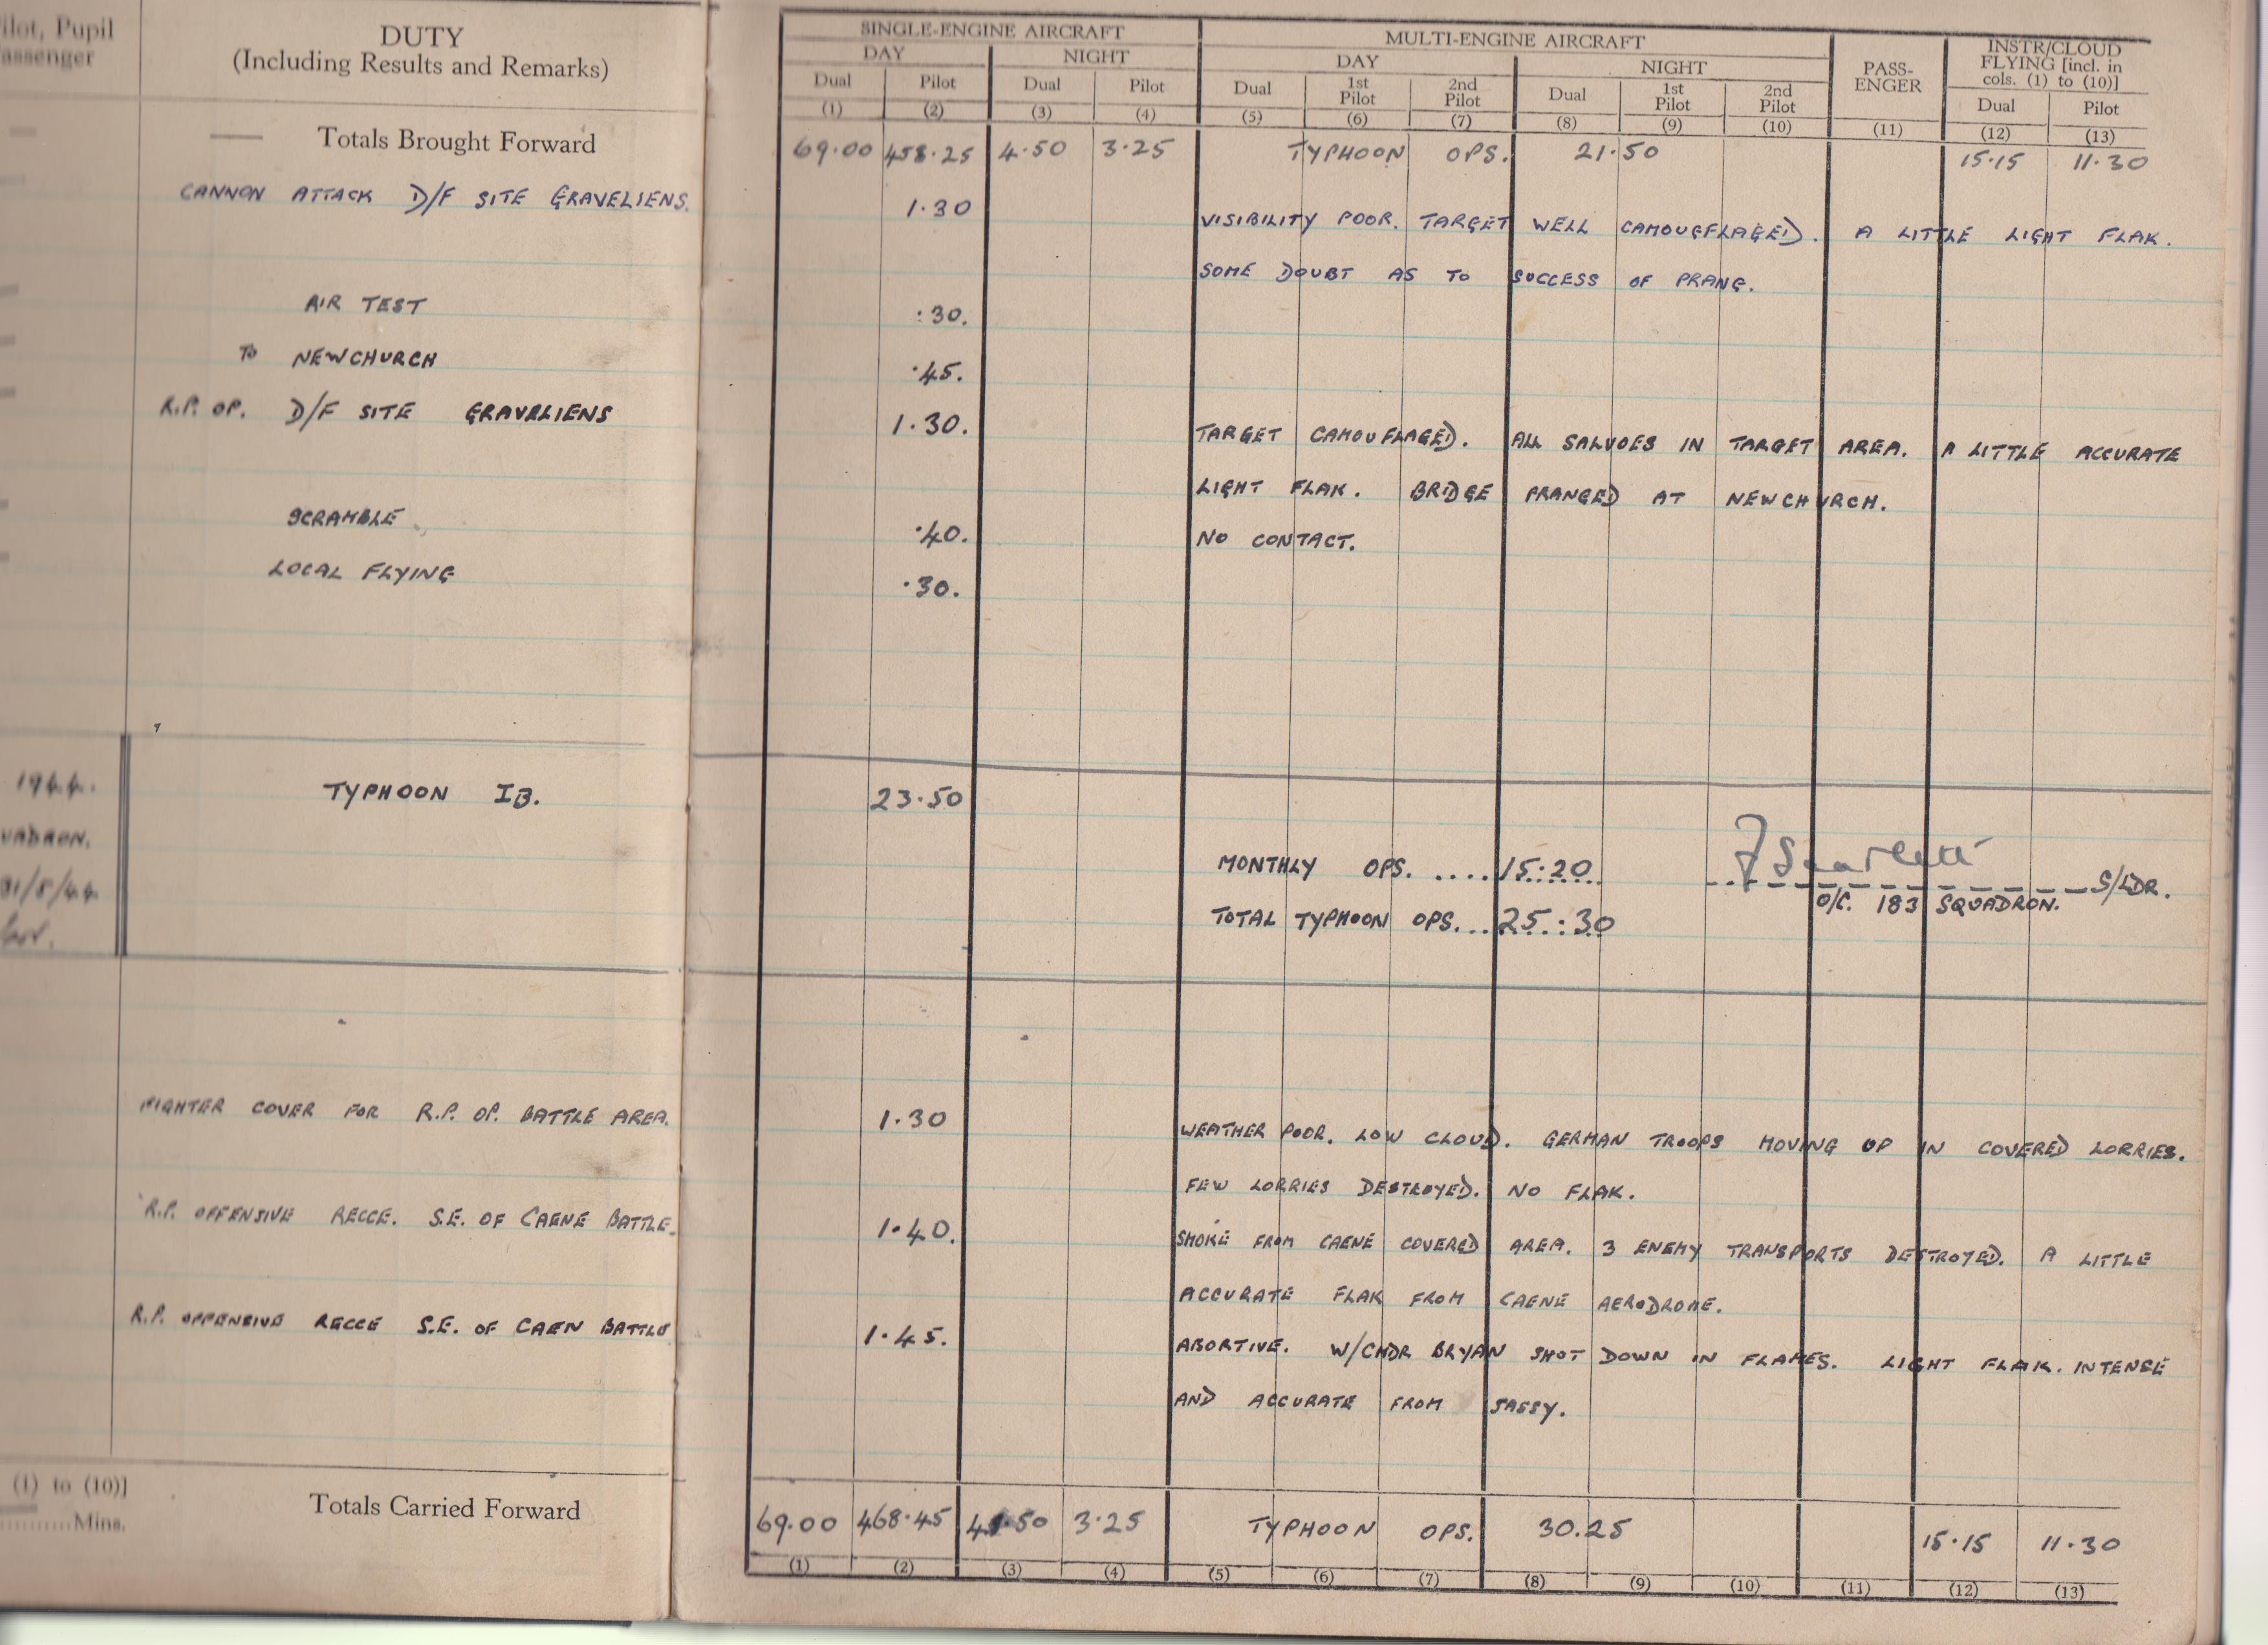 ilot, Pupil
assenger
DUTY
(Including Results and Remarks)
SINGLE-ENGINE AIRCRAFT
MULTI-ENGINE AIRCRAFT
PASS-
ENGER
INSTR/CLOUD
FLYING [incl. in
cols. (1) to (10)]
DAY NIGHT DAY NIGHT
Dual Pilot Dual Pilot Dual 1st Pilot 2nd Pilot Dual 1st Pilot 2nd Pilot Dual Pilot
(1) (2) (3) (4) (5) (6) (7) (8) (9) (10) (11) (12) (13)
Totals Brought Forward 69.00 458.25 4.50 3.25 TYPHOON OPS. 21.50 15.15 11.30
CANNON ATTACK D/F SITE GRAVELIENS. 1.30 VISIBILITY POOR. TARGET WELL CAMOUGFLAGED. A LITTLE LIGHT FLAK.
SOME DOUBT AS TO SUCCESS OF PRANG.
AIR TEST :30.
TO NEWCHURCH .45.
R.P. OP. D/F SITE GRAVELIENS 1.30. TARGET CAMOUFLAGED. ALL SALVOES IN TARGET AREA. A LITTLE ACCURATE
LIGHT FLAK. BRIDGE PRANGED AT NEWCHURCH.
SCRAMBLE .40. NO CONTACT.
LOCAL FLYING .30.
1944. TYPHOON IB. 23.50
UADRON.
31/5/44
MONTHLY OPS. .... 15:20 S/LDR.
O/C. 183 SQUADRON.
TOTAL TYPHOON OPS... 25:30
FIGHTER COVER FOR R.P. OP. BATTLE AREA. 1.30 WEATHER POOR. LOW CLOUD. GERMAN TROOPS MOVING UP IN COVERED LORRIES.
FEW LORRIES DESTROYED. NO FLAK.
R.P. OFFENSIVE RECCE. S.E. OF CAENE BATTLE. 1.40. SMOKE FROM CAENE COVERED AREA. 3 ENEMY TRANSPORTS DESTROYED. A LITTLE
ACCURATE FLAK FROM CAENE AERODROME.
R.P. OFFENSIVE RECCE S.E. OF CAEN BATTLE 1.45. ABORTIVE. W/CMDR BRYAN SHOT DOWN IN FLAMES. LIGHT FLAK. INTENSE
AND ACCURATE FROM SASSY.
(1) to (10)]
Mins.
Totals Carried Forward 69.00 468.45 4.50 3.25 TYPHOON OPS. 30.25 15.15 11.30
(1) (2) (3) (4) (5) (6) (7) (8) (9) (10) (11) (12) (13)